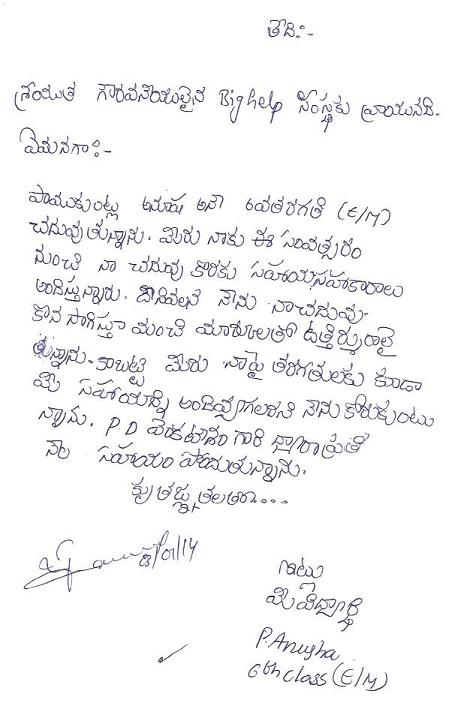 తేది:-
శ్రీయుత గౌరవనీయులైన Big help సంస్థకు వ్రాయునది.
ఏమనగా:-
పాముకుంట్ల అనూష అనే 6వతరగతి (E/M)
చదువుతున్నాను. మీరు నాకు ఈ సంవత్సరం
నుంచి నా చదువు కొరకు సహాయసహకారాలు
అందిస్తున్నారు. దీనివలన నేను నాచదువు
కొన సాగిస్తూ మంచి మార్కులతో ఉత్తీర్ణురాలై
తున్నాను. కాబట్టి మీరు నాపై తరగతులకు కూడా
మీ సహాయాన్ని అందివ్వగలరని నేను కోరుకుంటు
న్నాను. P.D వెంకటేశం గారి ద్వారా ప్రతి
నెల సహాయం పొందుతున్నాను.
కృతజ్ఞతలతో....
/01/14
ఇట్లు
మీ విద్యార్థి
P. Anusha
6th class (E/M)